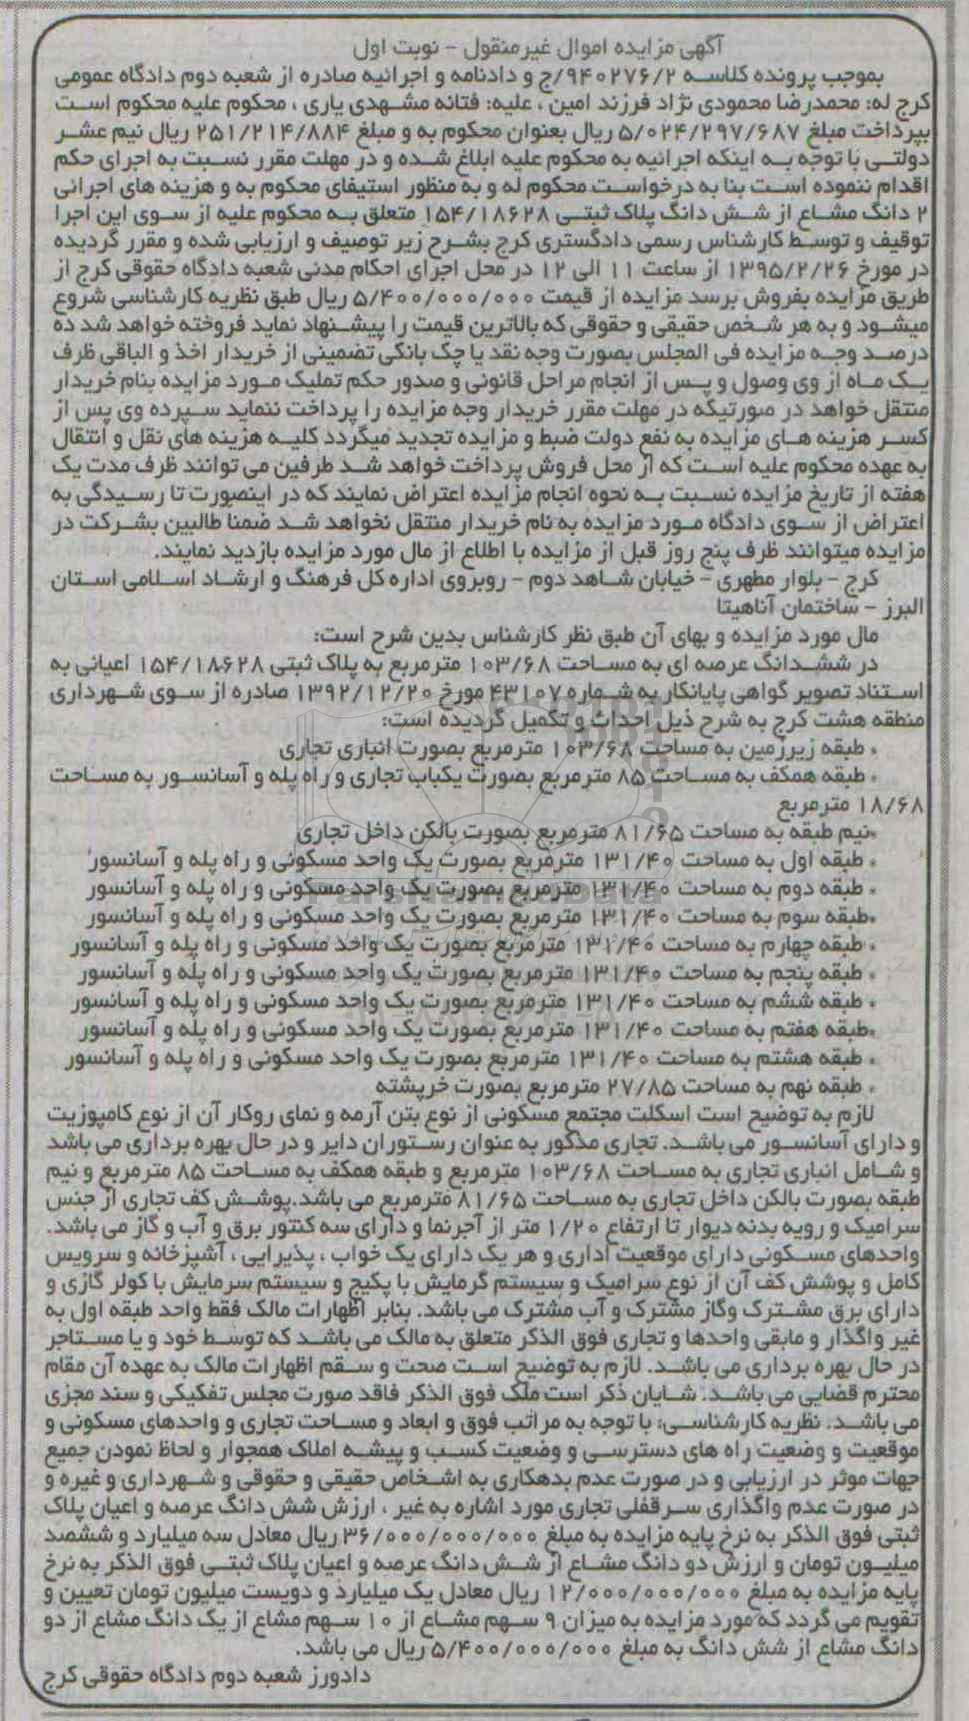 آگهی مزایده اموال غیرمنقول - نوبت اول
بموجب پرونده کلاسه ۹۴۰۲۷۶/۲/ج و دادنامه و اجرائیه صادره از شعبه دوم دادگاه عمومی
کرج له: محمدرضا محمودی نژاد فرزند امین ، علیه: فتانه مشهدی یاری ، محکوم علیه محکوم است
بپرداخت مبلغ ۵/۰۲۴/۲۹۷/۶۸۷ ریال بعنوان محکوم به و مبلغ ۲۵۱/۲۱۴/۸۸۴ ریال نیم عشر
دولتی با توجه به اینکه اجرائیه به محکوم علیه ابلاغ شده و در مهلت مقرر نسبت به اجرای حکم
اقدام ننموده است بنا به درخواست محکوم له و به منظور استیفای محکوم به و هزینه های اجرائی
۲ دانگ مشاع از شش دانگ پلاک ثبتی ۱۵۴/۱۸۶۲۸ متعلق به محکوم علیه از سوی این اجرا
توقیف و توسط کارشناس رسمی دادگستری کرج بشرح زیر توصیف و ارزیابی شده و مقرر گردیده
در مورخ ۱۳۹۵/۲/۲۶ از ساعت ۱۱ الی ۱۲ در محل اجرای احکام مدنی شعبه دادگاه حقوقی کرج از
طریق مزایده بفروش برسد مزایده از قیمت ۵/۴۰۰/۰۰۰/۰۰۰ ریال طبق نظریه کارشناسی شروع
میشود و به هر شخص حقیقی و حقوقی که بالاترین قیمت را پیشنهاد نماید فروخته خواهد شد ده
درصد وجه مزایده فی المجلس بصورت وجه نقد یا چک بانکی تضمینی از خریدار اخذ و الباقی ظرف
یک ماه از وی وصول و پس از انجام مراحل قانونی و صدور حکم تملیک مورد مزایده بنام خریدار
منتقل خواهد در صورتیکه در مهلت مقرر خریدار وجه مزایده را پرداخت ننماید سپرده وی پس از
کسر هزینه های مزایده به نفع دولت ضبط و مزایده تجدید میگردد کلیه هزینه های نقل و انتقال
به عهده محکوم علیه است که از محل فروش پرداخت خواهد شد طرفین می توانند ظرف مدت یک
هفته از تاریخ مزایده نسبت به نحوه انجام مزایده اعتراض نمایند که در اینصورت تا رسیدگی به
اعتراض از سوی دادگاه مورد مزایده به نام خریدار منتقل نخواهد شد ضمنا طالبین بشرکت در
مزایده میتوانند ظرف پنج روز قبل از مزایده با اطلاع از مال مورد مزایده بازدید نمایند.
کرج - بلوار مطهری - خیابان شاهد دوم - روبروی اداره کل فرهنگ و ارشاد اسلامی استان
البرز - ساختمان آناهیتا
مال مورد مزایده و بهای آن طبق نظر کارشناس بدین شرح است:
در ششدانگ عرصه ای به مساحت ۱۰۳/۶۸ مترمربع به پلاک ثبتی ۱۵۴/۱۸۶۲۸ اعیانی به
استناد تصویر گواهی پایانکار به شماره ۴۳۱۰۷ مورخ ۱۳۹۲/۱۲/۲۰ صادره از سوی شهرداری
منطقه هشت کرج به شرح ذیل احداث و تکمیل گردیده است:
• طبقه زیرزمین به مساحت ۱۰۳/۶۸ مترمربع بصورت انباری تجاری
• طبقه همکف به مساحت ۸۵ مترمربع بصورت یکباب تجاری و راه پله و آسانسور به مساحت
۱۸/۶۸ مترمربع
•نیم طبقه به مساحت ۸۱/۶۵ مترمربع بصورت بالکن داخل تجاری
• طبقه اول به مساحت ۱۳۱/۴۰ مترمربع بصورت یک واحد مسکونی و راه پله و آسانسور
• طبقه دوم به مساحت ۱۳۱/۴۰ مترمربع بصورت یک واحد مسکونی و راه پله و آسانسور
•طبقه سوم به مساحت ۱۳۱/۴۰ مترمربع بصورت یک واحد مسکونی و راه پله و آسانسور
• طبقه چهارم به مساحت ۱۳۱/۴۰ مترمربع بصورت یک واحد مسکونی و راه پله و آسانسور
• طبقه پنجم به مساحت ۱۳۱/۴۰ مترمربع بصورت یک واحد مسکونی و راه پله و آسانسور
• طبقه ششم به مساحت ۱۳۱/۴۰ مترمربع بصورت یک واحد مسکونی و راه پله و آسانسور
•طبقه هفتم به مساحت ۱۳۱/۴۰ مترمربع بصورت یک واحد مسکونی و راه پله و آسانسور
• طبقه هشتم به مساحت ۱۳۱/۴۰ مترمربع بصورت یک واحد مسکونی و راه پله و آسانسور
• طبقه نهم به مساحت ۲۷/۸۵ مترمربع بصورت خرپشته
لازم به توضیح است اسکلت مجتمع مسکونی از نوع بتن آرمه و نمای روکار آن از نوع کامپوزیت
و دارای آسانسور می باشد. تجاری مذکور به عنوان رستوران دایر و در حال بهره برداری می باشد
و شامل انباری تجاری به مساحت ۱۰۳/۶۸ مترمربع و طبقه همکف به مساحت ۸۵ مترمربع و نیم
طبقه بصورت بالکن داخل تجاری به مساحت ۸۱/۶۵ مترمربع می باشد.پوشش کف تجاری از جنس
سرامیک و رویه بدنه دیوار تا ارتفاع ۱/۲۰ متر از آجرنما و دارای سه کنتور برق و آب و گاز می باشد.
واحدهای مسکونی دارای موقعیت اداری و هر یک دارای یک خواب ، پذیرایی ، آشپزخانه و سرویس
کامل و پوشش کف آن از نوع سرامیک و سیستم گرمایش با پکیج و سیستم سرمایش با کولر گازی و
دارای برق مشترک وگاز مشترک و آب مشترک می باشد. بنابر اظهارات مالک فقط واحد طبقه اول به
غیر واگذار و مابقی واحدها و تجاری فوق الذکر متعلق به مالک می باشد که توسط خود و یا مستاجر
در حال بهره برداری می باشد. لازم به توضیح است صحت و سقم اظهارات مالک به عهده آن مقام
محترم قضایی می باشد. شایان ذکر است ملک فوق الذکر فاقد صورت مجلس تفکیکی و سند مجزی
می باشد. نظریه کارشناسی: با توجه به مراتب فوق و ابعاد و مساحت تجاری و واحدهای مسکونی و
موقعیت و وضعیت راه های دسترسی و وضعیت کسب و پیشه املاک همجوار و لحاظ نمودن جمیع
جهات موثر در ارزیابی و در صورت عدم بدهکاری به اشخاص حقیقی و حقوقی و شهرداری و غیره و
در صورت عدم واگذاری سرقفلی تجاری مورد اشاره به غیر ، ارزش شش دانگ عرصه و اعیان پلاک
ثبتی فوق الذکر به نرخ پایه مزایده به مبلغ ۳۶/۰۰۰/۰۰۰/۰۰۰ ریال معادل سه میلیارد و ششصد
میلیون تومان و ارزش دو دانگ مشاع از شش دانگ عرصه و اعیان پلاک ثبتی فوق الذکر به نرخ
پایه مزایده به مبلغ ۱۲/۰۰۰/۰۰۰/۰۰۰ ریال معادل یک میلیارد و دویست میلیون تومان تعیین و
تقویم می گردد که مورد مزایده به میزان ۹ سهم مشاع از ۱۰ سهم مشاع از یک دانگ مشاع از دو
دانگ مشاع از شش دانگ به مبلغ ۵/۴۰۰/۰۰۰/۰۰۰ ریال می باشد.
دادورز شعبه دوم دادگاه حقوقی کرج